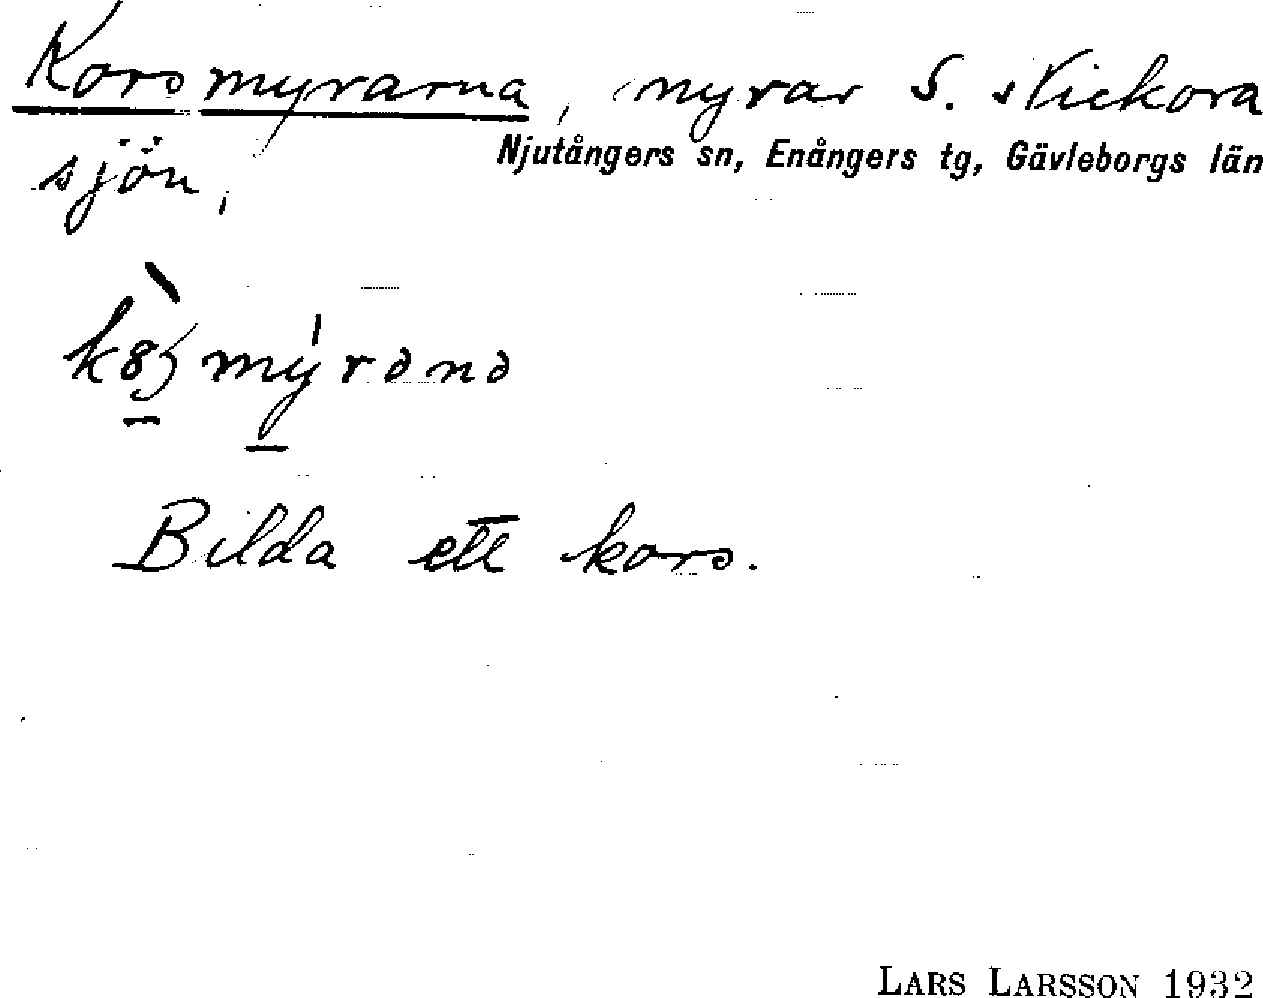 Korsmyrarna, myrar S. Nickora
sjön,
Njutångers sn, Enångers tg, Gävleborgs län
Bilda ett kors.
LARS LARSSON 1932